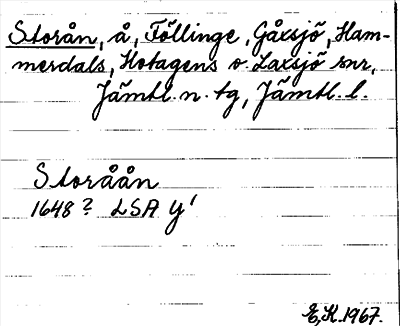 Storån, å, Föllinge, Gåxsjö, Ham-
merdals, Hotagens o. Laxsjö snr,
Jämtl. n. tg, Jämtl. l.
Storåån
1648? LSA Y¹
E.K. 1967.